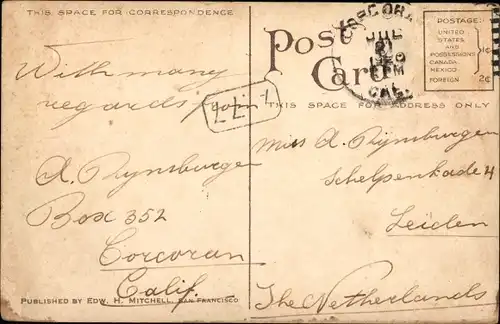 THIS SPACE FOR CORRESPONDENCE
With many
regards from
A. Rynsburger
Box 352
Corcoran
Calif.
PUBLISHED BY EDW. H. MITCHELL, SAN FRANCISCO
Post
Card
THIS SPACE FOR ADDRESS ONLY
CORCORAN
JUL
21
PM
CAL.
POSTAGE:
UNITED
STATES AND
POSSESSIONS 1¢
CANADA
MEXICO
FOREIGN 2¢
Miss A. Rynsburger
Schelpenkade 4
Leiden
The Netherlands